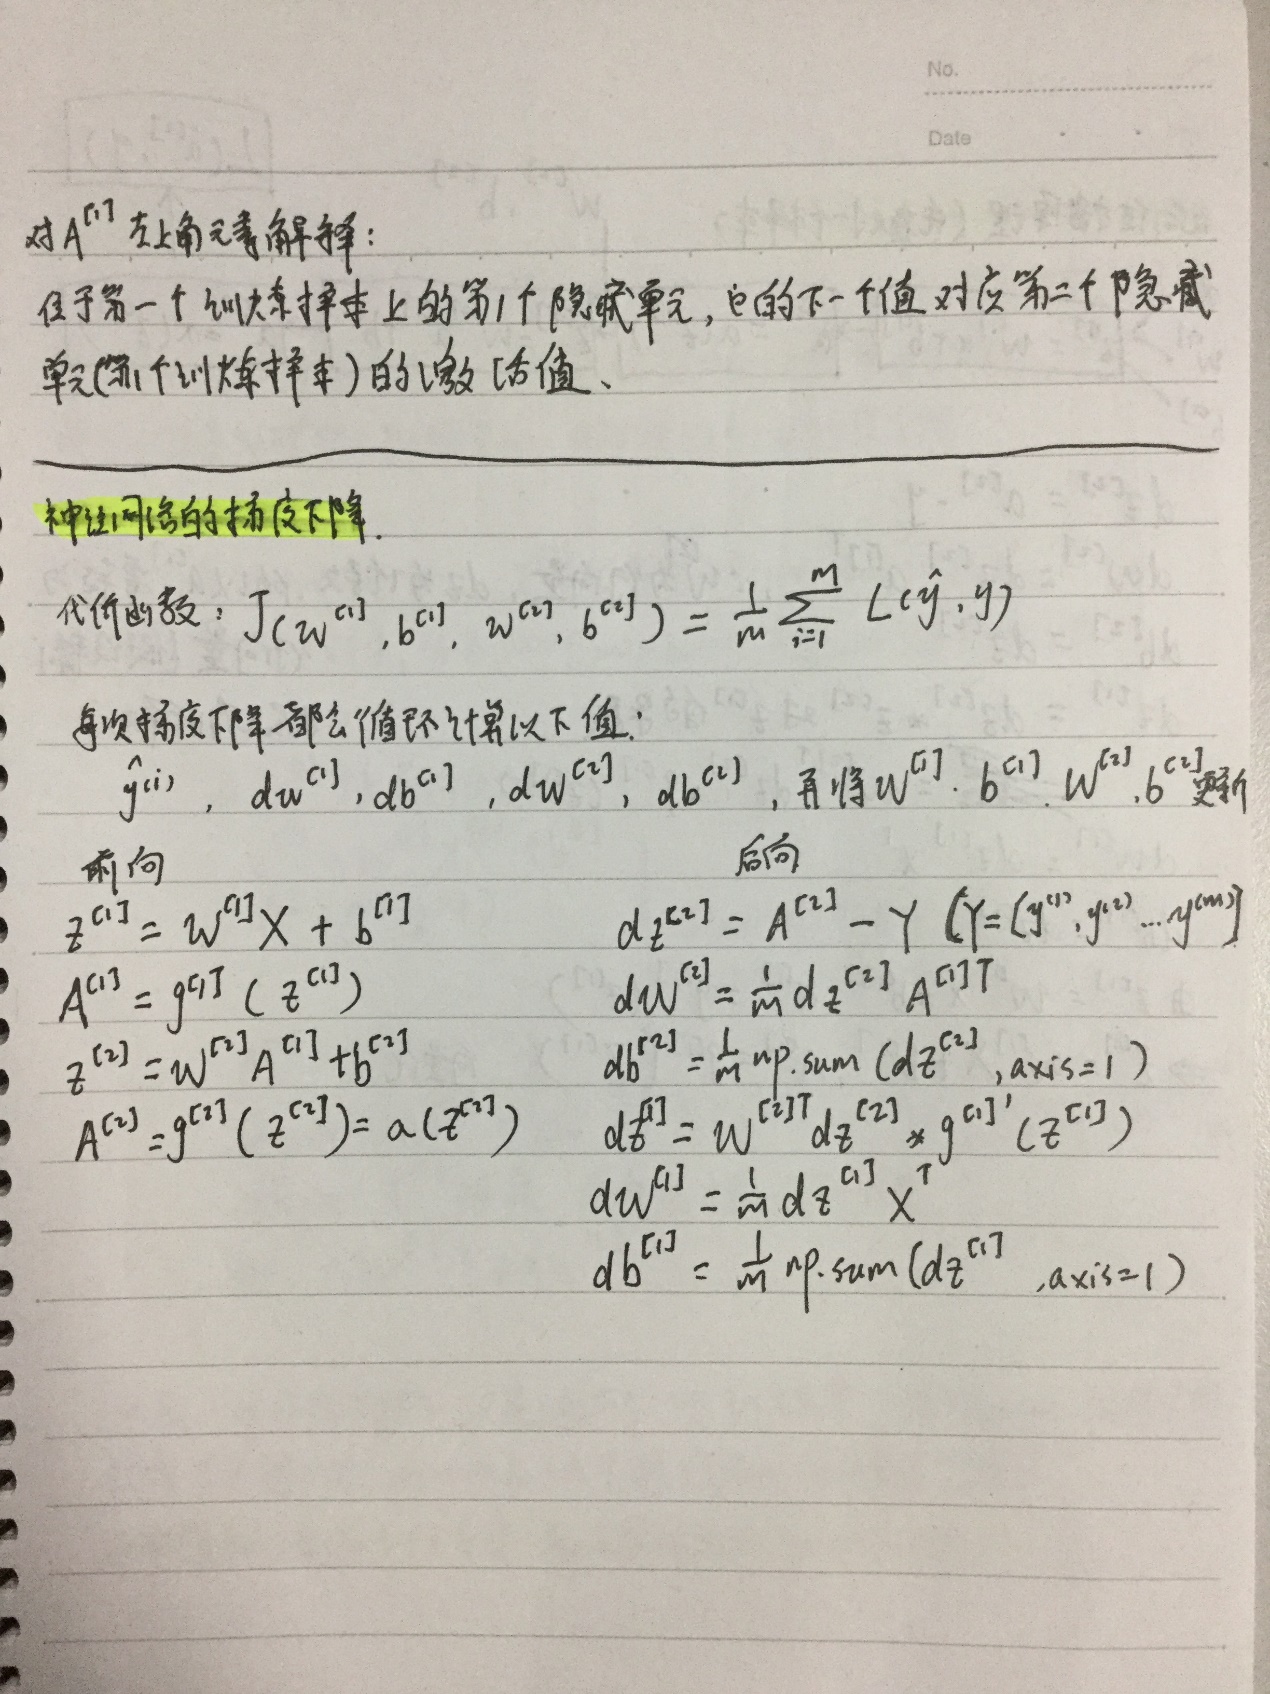 No.
Date
对A^[1]左上角元素解释:
位于第一个训练样本上的第1个隐藏单元,它的下一个值对应第二个隐藏
单元(第1个训练样本)的激活值、
神经网络的梯度下降.
代价函数: J(w^[1], b^[1], w^[2], b^[2]) = 1/m Σ_{i=1}^{m} L(ŷ, y)
每次梯度下降都会循环计算以下值:
ŷ^(i), dw^[1], db^[1], dw^[2], db^[2], 再将w^[1]. b^[1]. W^[2]. b^[2]更新
前向
z^[1] = W^[1]X + b^[1]
A^[1] = g^[1](z^[1])
z^[2] = W^[2]A^[1]+b^[2]
A^[2] = g^[2](z^[2]) = a(Z^[2])
后向
dz^[2] = A^[2] - Y [Y=[y^(1), y^(2) ... y^(m)]
dW^[2] = 1/m dz^[2] A^[1]T
db^[2] = 1/m np.sum(dz^[2], axis=1)
dz^[1] = W^[2]T dz^[2] * g^[1]'(z^[1])
dW^[1] = 1/m dz^[1] X^T
db^[1] = 1/m np.sum(dz^[1], axis=1)